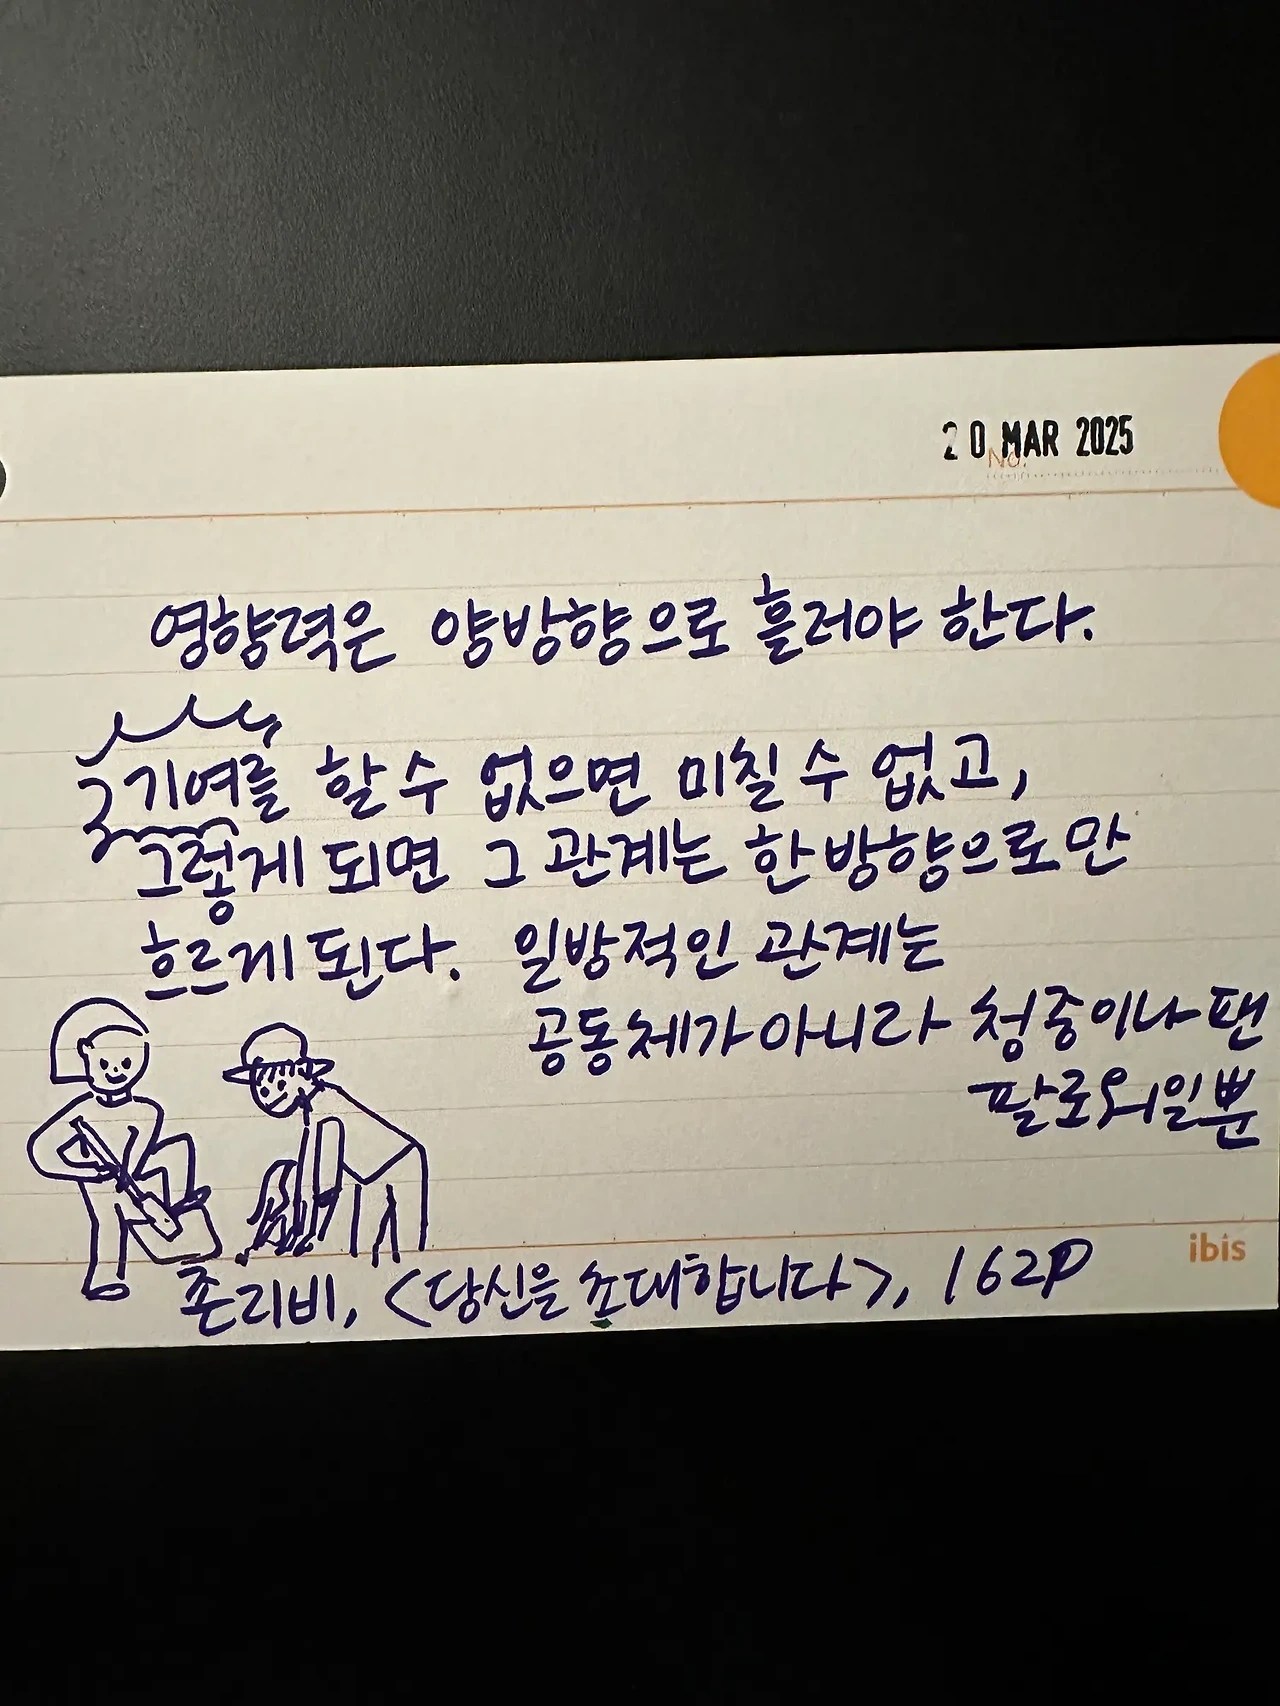 20 MAR 2025
No.
영향력은 양방향으로 흘러야 한다.
기여를 할 수 없으면 미칠 수 없고,
그렇게 되면 그 관계는 한 방향으로만
흐르게 된다. 일방적인 관계는
공동체가 아니라 청중이나 팬
팔로워일뿐
ibis
존리비, <당신을 초대합니다>, 162p